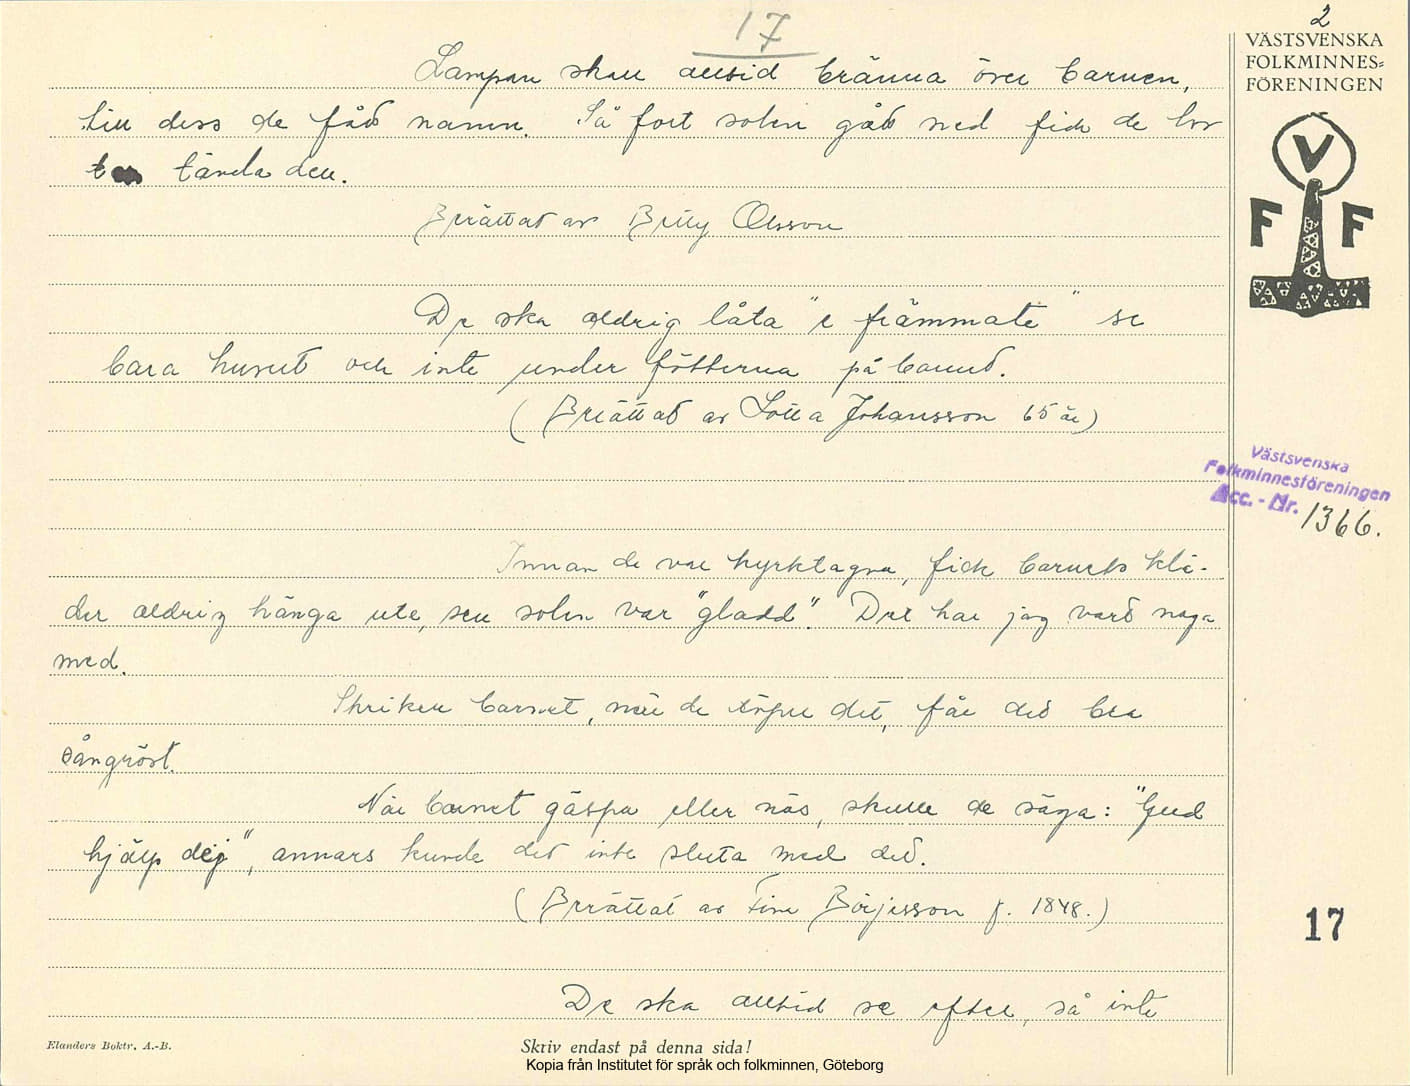 17
2
VÄSTSVENSKA
FOLKMINNES=
FÖRENINGEN
V
F F
Lampan skall alltid bränna över barnen,
till dess de fått namn. Så fort solen gått ned fick de lov
tända den.
Berättat av Britty Olsson
De ska aldrig låta "e främmate" se
bara huvut och inte under fötterna på barnet.
(Berättat av Lotta Johansson 65 år)
Västsvenska
Folkminnesföreningen
Acc. - Nr. 1366.
Innan de var kyrktagna, fick barnets klä-
der aldrig hänga ute, sen solen var "gladd". Det har jag vart noga
med.
Skriker barnet, när de döper det, får det bra
sångröst.
När barnet gäspa eller nös, skulle de säga: "Gud
hjälp dej", annars kunde det inte sluta med det.
(Berättat av Fina Börjesson f. 1848.)
17
De ska alltid se efter, så inte
Elanders Boktr. A.-B.
Skriv endast på denna sida!
Kopia från Institutet för språk och folkminnen, Göteborg